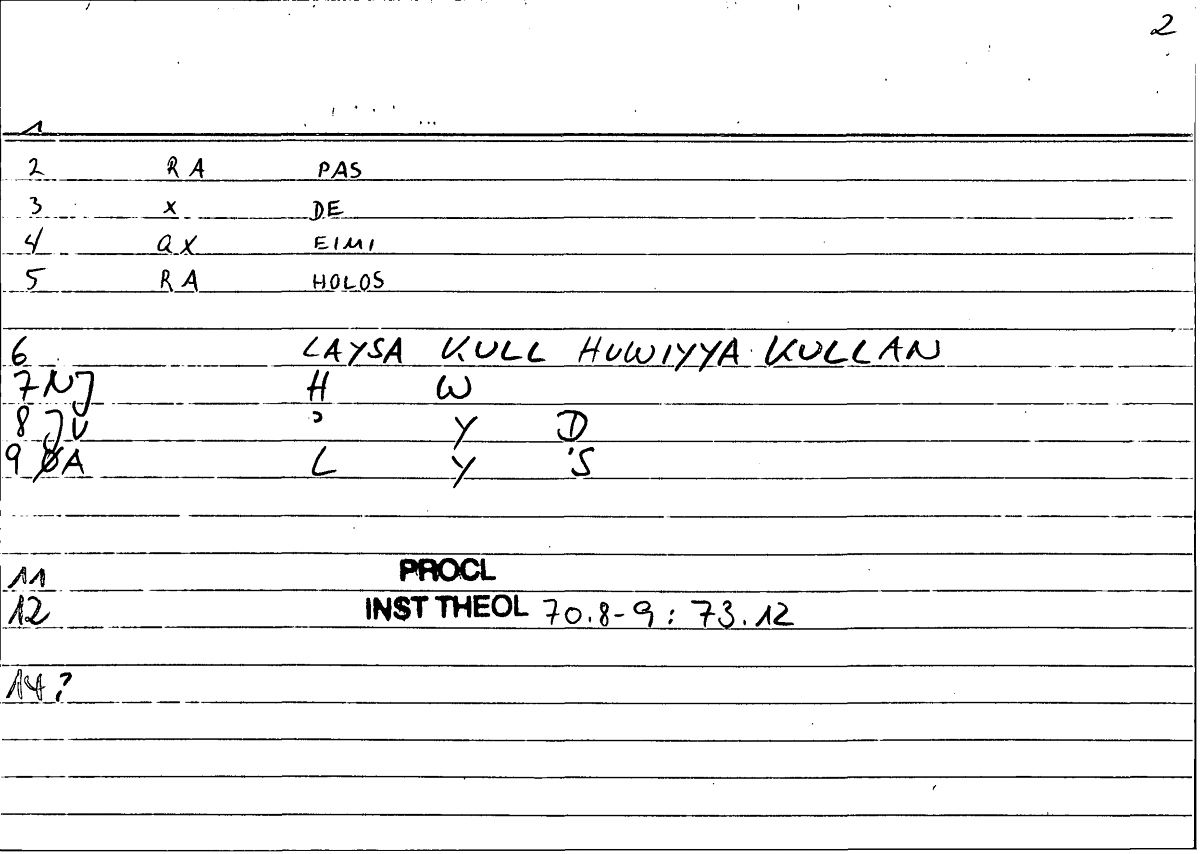 2
1
2 RA PAS
3 X DE
4 QX EIMI
5 RA HOLOS
6 LAYSA KULL HUWIYYA KULLAN
7 NJ H W
8 JU ' Y D
9 A L Y 'S
11 PROCL
12 INST THEOL 70.8-9: 73.12
14?